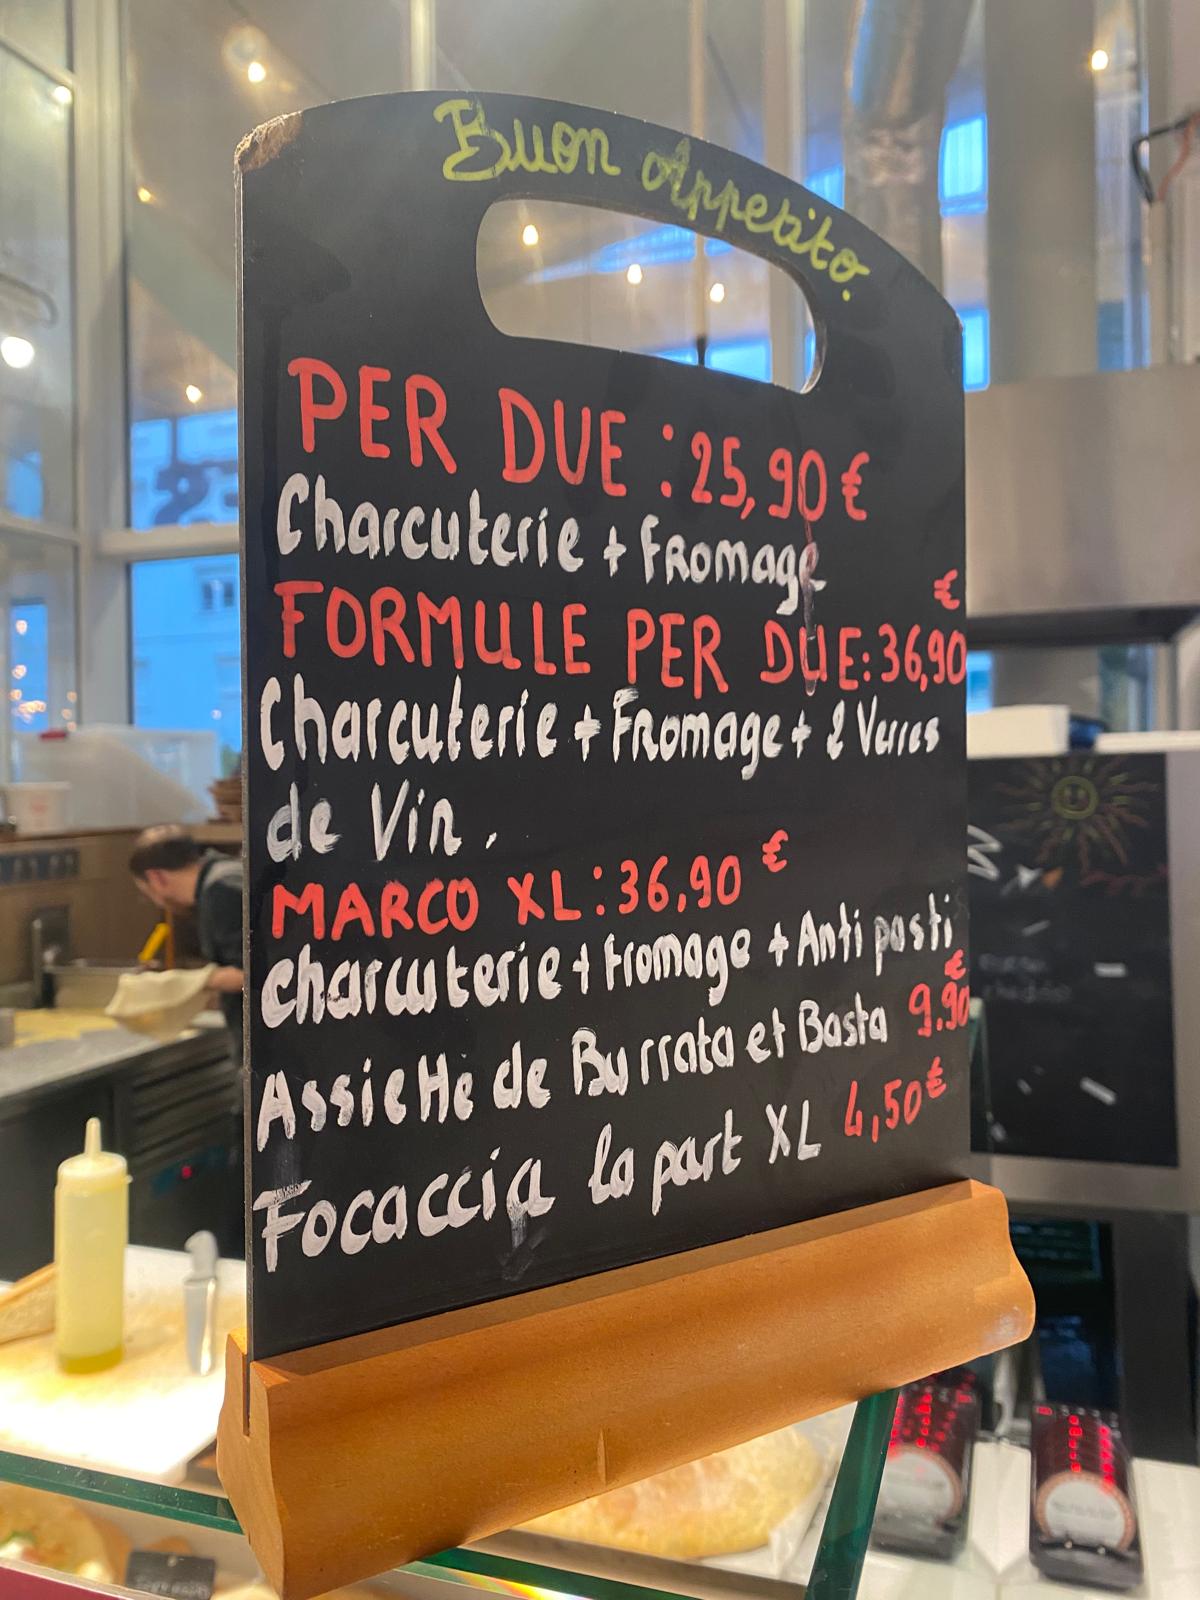 Buon Appetito.
PER DUE : 25,90 €
Charcuterie + Fromage
FORMULE PER DUE: 36,90 €
Charcuterie + Fromage + 2 Verres
de Vin.
MARCO XL : 36,90 €
charcuterie + fromage + Anti pasti
Assiette de Burrata et Basta 9.90 €
Focaccia la part XL 4,50 €